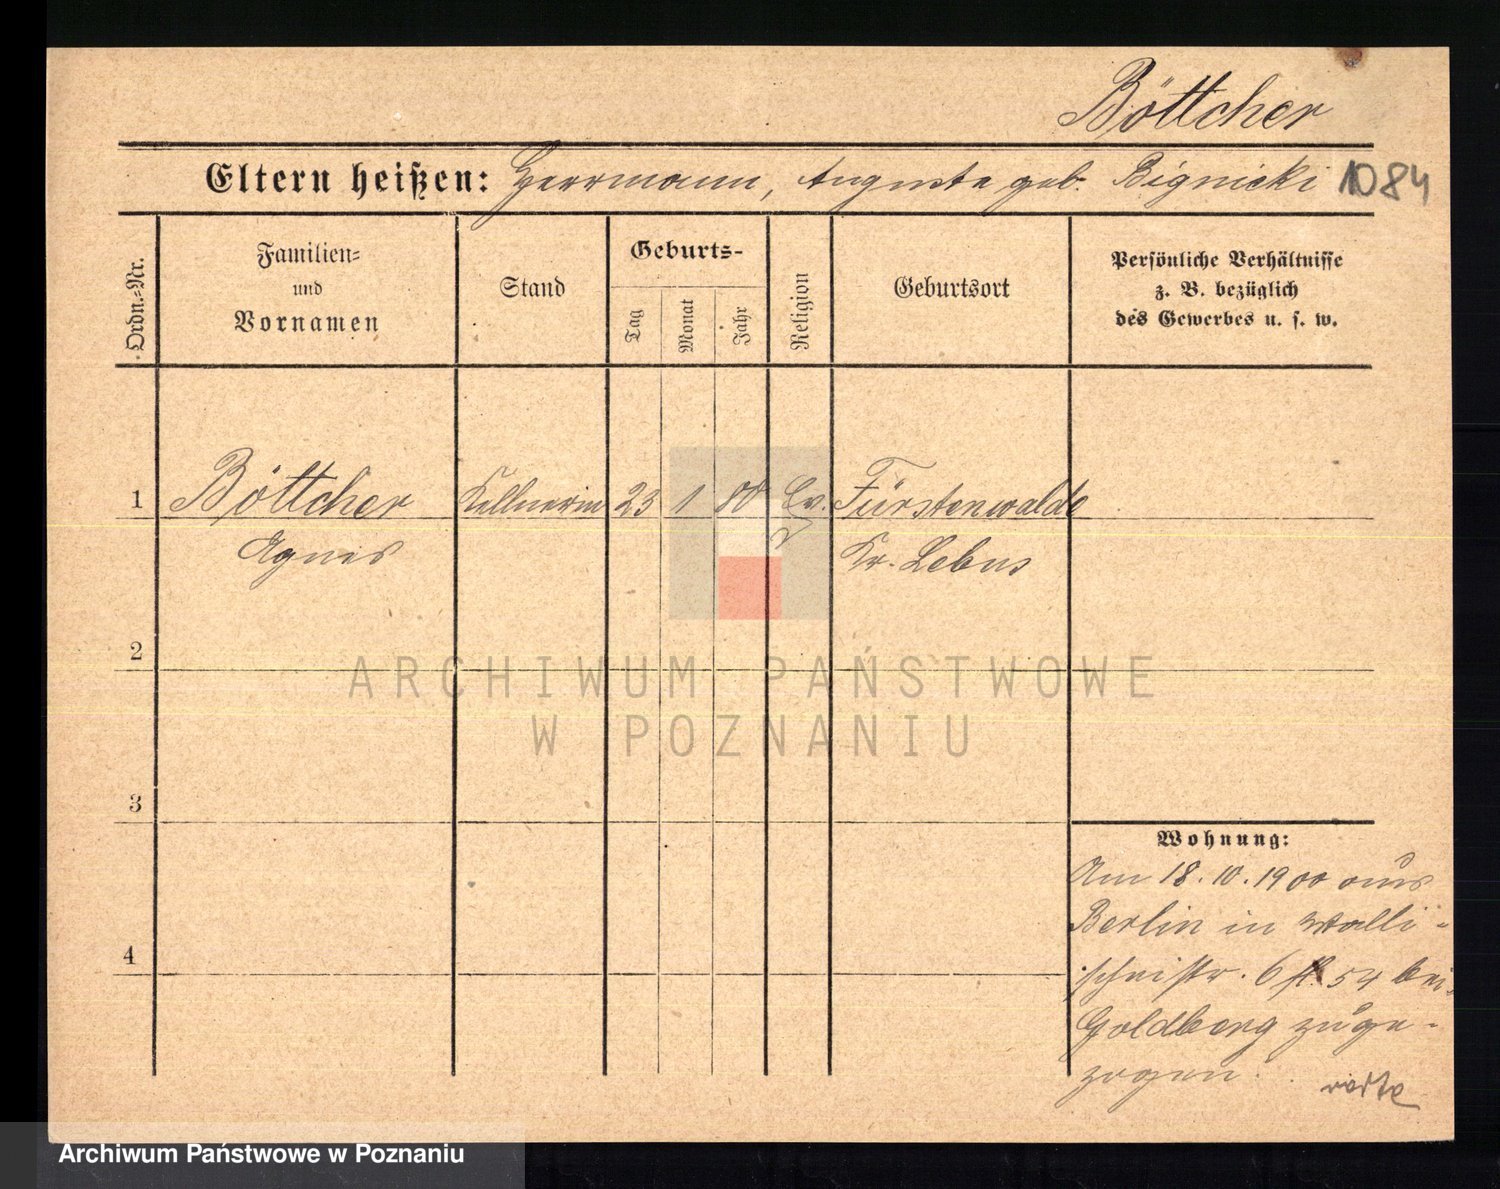 Böttcher
Eltern heißen: Herrmann, Auguste geb. Bignicki 1084
Ordn.-Nr.
Familien-
und
Vornamen
Stand
Geburts-
Tag
Monat
Jahr
Religion
Geburtsort
Persönliche Verhältnisse
z. B. bezüglich
des Gewerbes u. s. w.
1 Böttcher Kellnerin 23 1 80 Ev. Fürstenwalde
Agnes Kr. Lebus
2
ARCHIWUM PAŃSTWOWE
W POZNANIU
3
Wohnung:
Am 18.10.1900 aus
Berlin in Walli-
scheistr. 54 bei
4
Goldberg zuge-
zogen.
Archiwum Państwowe w Poznaniu